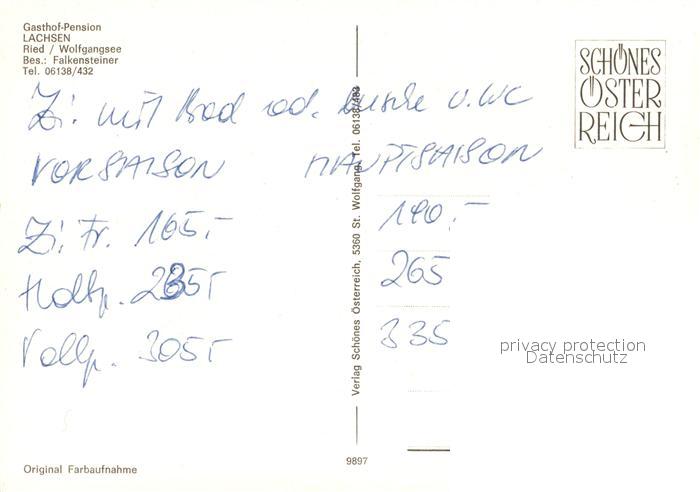 Gasthof-Pension
LACHSEN
Ried / Wolfgangsee
Bes.: Falkensteiner
Tel. 06138/432
SCHÖNES
ÖSTER
REICH
Zi. mit Bad od. Dusche u. WC
VORSAISON HAUPTSAISON
Zi. Fr. 165,- 190.-
Halbp. 235,- 265
Vollp. 305,- 335
Verlag Schönes Österreich, 5360 St. Wolfgang, Tel. 06138/483
privacy protection
Datenschutz
9897
Original Farbaufnahme